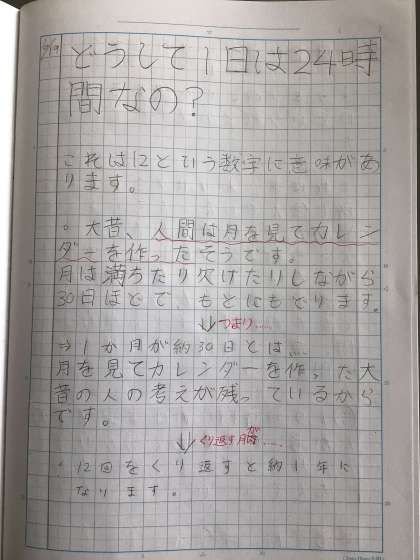 9/9
どうして1日は24時
間なの?
これは12という数字に意味があ
ります。
。大昔、人間は月を見てカレン
ダーを作ったそうです。
月は満ちたり欠けたりしながら
30日ほどで、もとにもどります。
つまり……
→1か月が約30日とは…
月を見てカレンダーを作った大
昔の人の考えが残っているから
です。
くり返す月が……
・12回をくり返すと約1年に
なります。